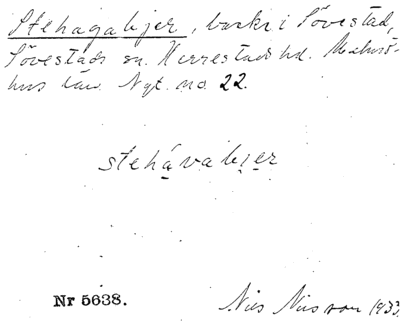 Stehagabjer, backe i Sövestad,
Sövestads sn. Herrestads hd. Malmö-
hus län. Nyt. no 22.
stehávabjer
Nr 5638.
Nils Nilsson 1933.